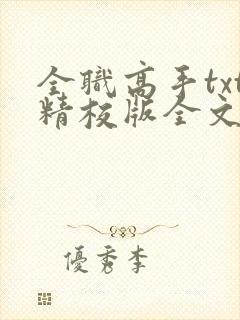 全職高手txt
精校版全文
優秀李